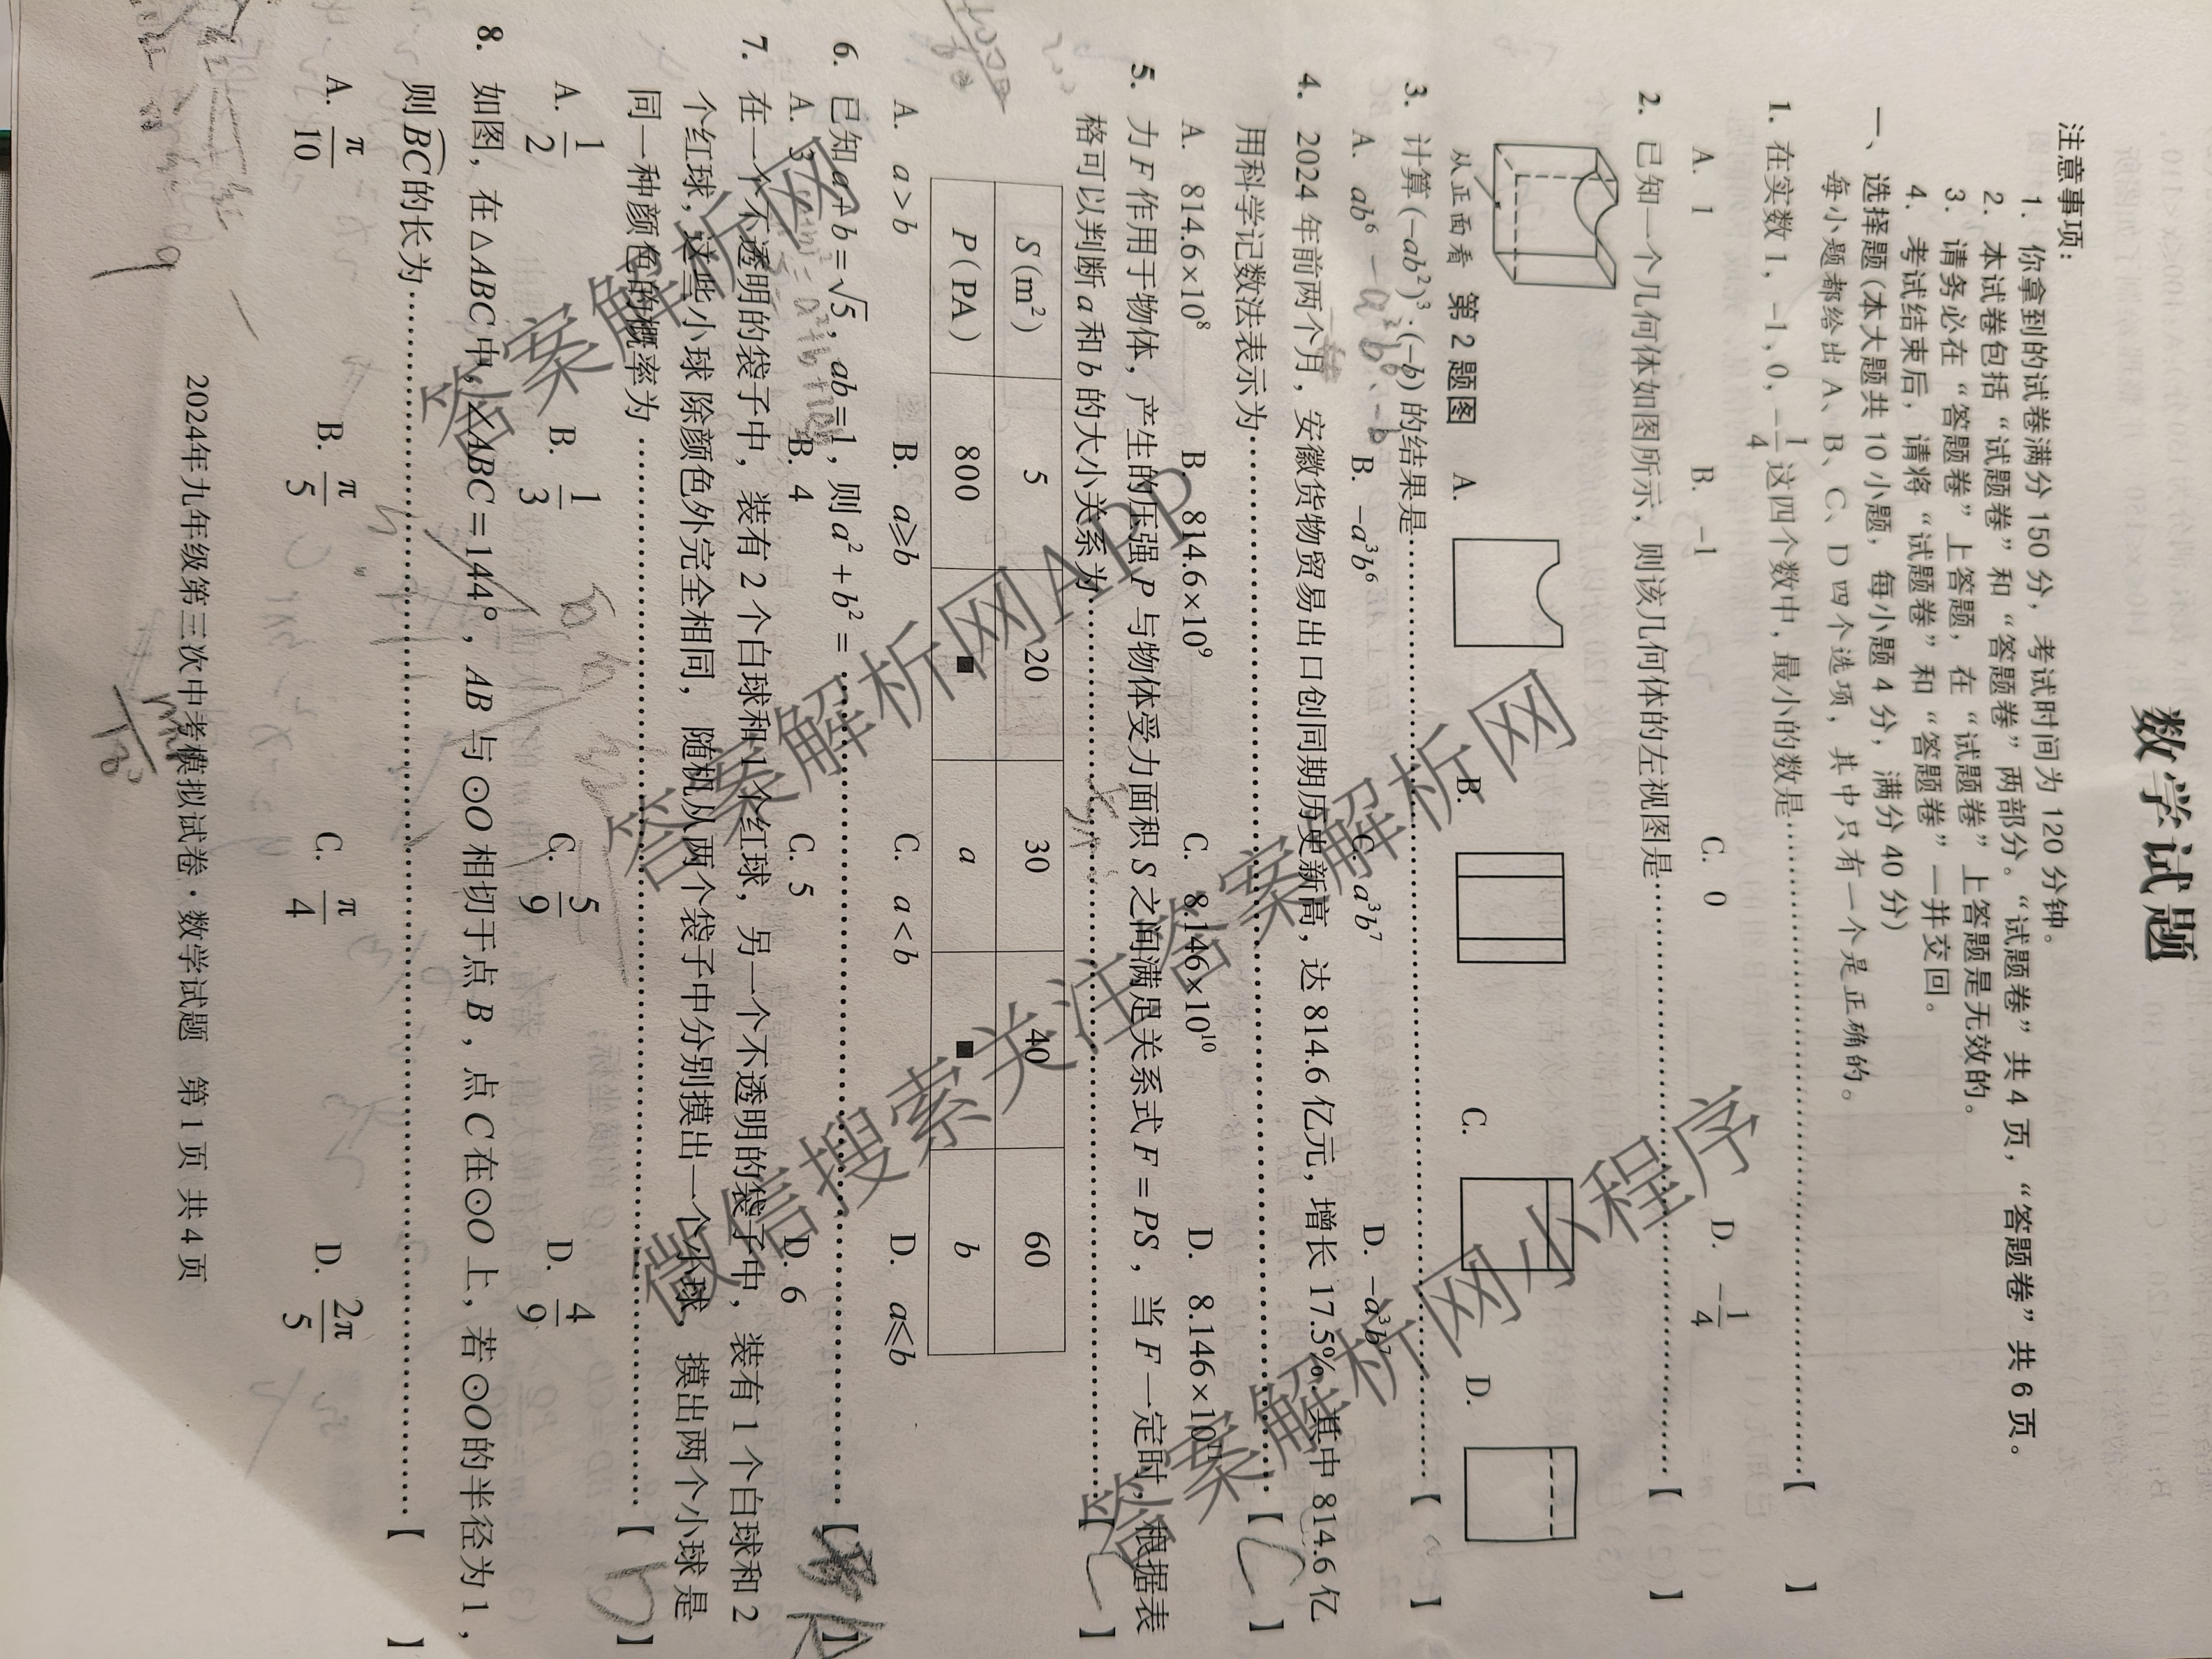 数学试题
注意事项：
1. 你拿到的试卷满分 150 分，考试时间为 120 分钟。
2. 本试卷包括“试题卷”和“答题卷”两部分。“试题卷”共 4 页，“答题卷”共 6 页。
3. 请务必在“答题卷”上答题，在“试题卷”上答题是无效的。
4. 考试结束后，请将“试题卷”和“答题卷”一并交回。
一、选择题(本大题共 10 小题，每小题 4 分，满分 40 分)
每小题都给出 A、B、C、D 四个选项，其中只有一个是正确的。
1. 在实数 1，-1，0，-1/4 这四个数中，最小的数是……【 】
A. 1 B. -1 C. 0 D. -1/4
2. 已知一个几何体如图所示，则该几何体的左视图是……【 】
A. B. C. D.
从正面看 第 2 题图
3. 计算(-ab²)³·(-b)的结果是……【 】
A. ab⁶ B. -a³b⁶ C. a³b⁷ D. -a³b⁷
4. 2024 年前两个月，安徽货物贸易出口创同期历史新高，达 814.6 亿元，增长 17.5%. 其中 814.6 亿
用科学记数法表示为……【 】
A. 814.6×10⁸ B. 814.6×10⁹ C. 8.146×10¹⁰ D. 8.146×10¹¹
5. 力 F 作用于物体，产生的压强 P 与物体受力面积 S 之间满足关系式 F=PS，当 F 一定时，根据表
格可以判断 a 和 b 的大小关系为……【 】
S(m²) 5 20 30 40 60
P(PA) 800 ■ a ■ b
A. a>b B. a≥b C. a<b D. a≤b
6. 已知 a+b=√5，ab=1，则 a²+b²=……【 】
A. 3 B. 4 C. 5 D. 6
7. 在一个不透明的袋子中，装有 2 个白球和 1 个红球，另一个不透明的袋子中，装有 1 个白球和 2
个红球，这些小球除颜色外完全相同，随机从两个袋子中分别摸出一个小球，摸出两个小球是
同一种颜色的概率为……【 】
A. 1/2 B. 1/3 C. 5/9 D. 4/9
8. 如图，在△ABC 中，∠ABC=144°，AB 与⊙O 相切于点 B，点 C 在⊙O 上，若⊙O的半径为 1，
则 BC⌒的长为……【 】
A. π/10 B. π/5 C. π/4 D. 2π/5
2024年九年级第三次中考模拟试卷·数学试题 第 1 页 共 4 页
答案解析网
微信搜索关注答案解析网
答案解析网APP
答案解析网小程序